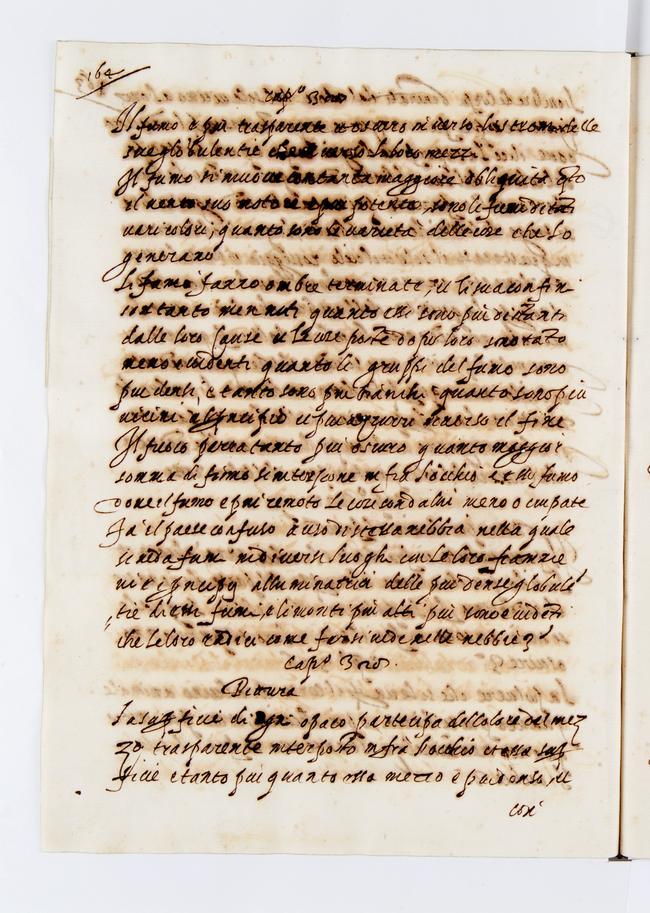 164
Cap.º 3
Il fumo è più trasparente e oscuro inverso li stremi delle
sue globulentie che inverso li loro mezzi
Il fumo si muove con tanta maggiore obliquità
il vento suo motore è più potente, sono le fumi di tanti
vari colori, quanto sono le varietà delle cose che lo
generano
Li fumi fanno ombre terminate, e li sua confini
son tanto men noti quanto essi sono più distanti
dalle loro cause e le cose poste dopo loro son tanto
meno evidenti quanto li gruppi del fumo sono
più densi, e tanto sono più bianchi quanto sono più
vicini al principio e più azzurri inverso il fine
Il fuoco parrà tanto più oscuro quanto maggior
somma di fumo s'interpone in fra l'occhio e esso fumo
Dove il fumo è più remoto le cose son da lui meno occupate
Fa il paese confuso a uso di stessa nebbia nella quale
si veda fumi in diversi luoghi con le loro fiamme
ne principij alluminatrici delle più dense globulen
tie di essi fumi, e li monti più alti più sono evidenti
che le loro radici come far si vede nelle nebbie
Cap.º 3
Pittura
La superficie di ogni opaco partecipa del colore del mez
zo trasparente interposto in fra l'occhio et essa super
ficie e tanto più quanto esso mezzo è più denso, e
con